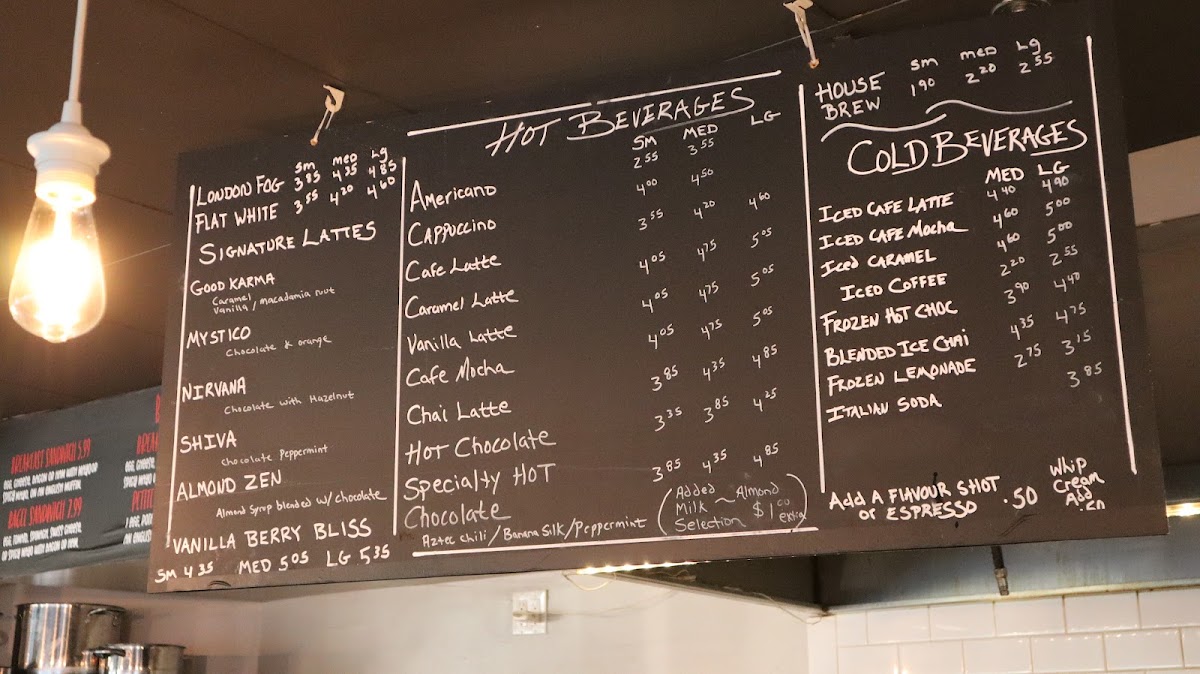 LONDON FOG SM 3 85 MED 4 35 Lg 4 85
FLAT WHITE 3 55 4 20 4 60
SIGNATURE LATTES
GOOD KARMA
Caramel,
Vanilla / macadamia nut
MYSTICO
Chocolate & orange
NIRVANA
Chocolate with Hazelnut
SHIVA
chocolate Peppermint
ALMOND ZEN
Almond Syrup blended w/ chocolate
VANILLA BERRY BLISS
SM 4 35 MED 5 05 LG 5 35
HOT BEVERAGES
SM MED LG
Americano 2 55 3 55
CAPPUCCINO 4 00 4 50
Cafe Latte 3 55 4 20 4 60
Caramel Latte 4 05 4 75 5 05
Vanilla Latte 4 05 4 75 5 05
Cafe Mocha 4 05 4 75 5 05
Chai Latte 3 85 4 35 4 85
HOT Chocolate 3 35 3 85 4 25
Specialty HOT
Chocolate 3 85 4 35 4 85
Aztec chili / Banana Silk / Peppermint
(Added ~ Almond
Milk
Selection $1 00 extra)
HOUSE BREW
SM MED Lg
1 90 2 20 2 55
COLD BEVERAGES
MED LG
ICED CAFE LATTE 4 40 4 90
ICED CAFE MOCHA 4 60 5 00
ICED CARAMEL 4 60 5 00
ICED COFFEE 2 20 2 55
FROZEN HOT CHOC 3 90 4 40
BLENDED ICE CHAI 4 35 4 75
FROZEN LEMONADE 2 75 3 15
ITALIAN SODA 3 85
Add A FLAVOUR SHOT
or ESPRESSO .50
Whip
Cream
Add
BREAKFAST SANDWICH 5.99
EGG, CHEESE, BACON OR HAM WITH MAYO OR
SPICY MAYO, ON AN ENGLISH MUFFIN.
BAGEL SANDWICH
EGG, TOMATO, SPINACH, SWISS CHEESE
OF SPICY MAYO WITH BACON OR HAM.